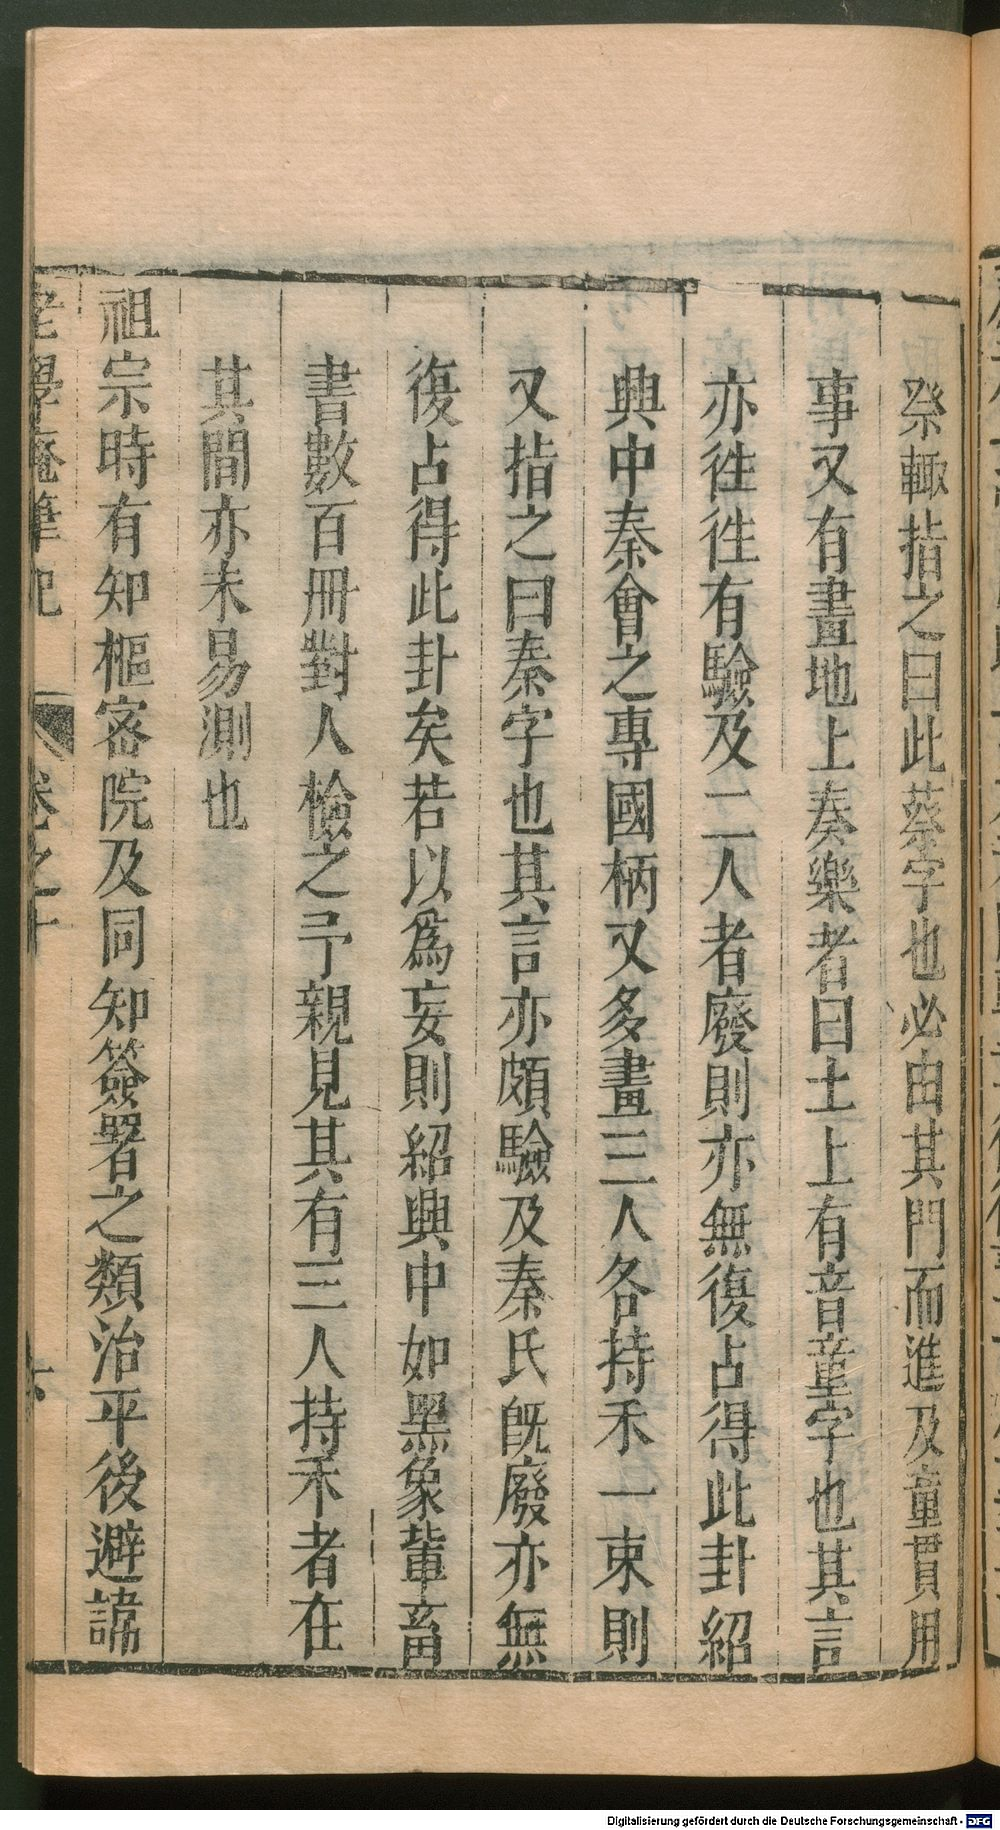 祭輙指之曰此蔡字也必由其門而進及童貫用
事又有畫地上奏樂者曰土上有音童字也其言
亦徃徃有驗及二人者廢則亦無復占得此卦紹
興中秦會之專國柄又多畫三人各持禾一束則
又指之曰秦字也其言亦頗驗及秦氏旣廢亦無
復占得此卦矣若以爲妄則紹興中如黑象軰畜
書數百冊對人檢之予親見其有三人持禾者在
其間亦未易測也
祖宗時有知樞宻院及同知簽署之類治平後避諱
老學庵筆記 卷之十 六
Digitalisierung gefördert durch die Deutsche Forschungsgemeinschaft - DFG